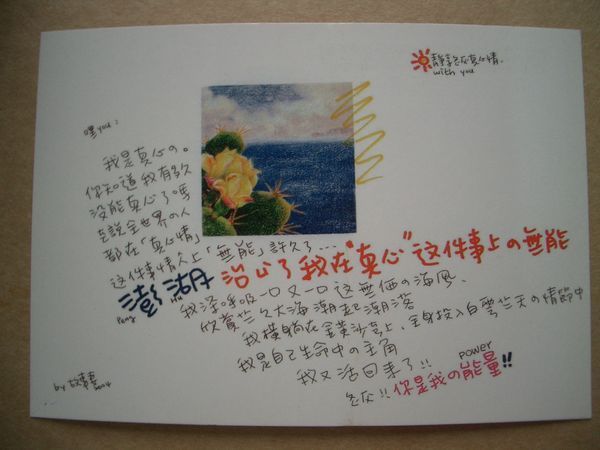 靜享在真心情.
with you
嘿you:
我是真心の。
你知道我有多久
沒能真心了嗎
是說全世界の人
都在「真心情」
這件事情上「無能」許久了...
澎湖 治公了我在"真心"这件事上の無能
Peng Hu
我深呼吸一口又一口這無価の海風
欣賞竺久大海潮起潮落
我橫躺在金黃沙岛上,全身投入白雲竺天の情節中
我是自己生命中の主角
我又活回來了!!
power
!!你是我の能量!!
by 故事妻 2004